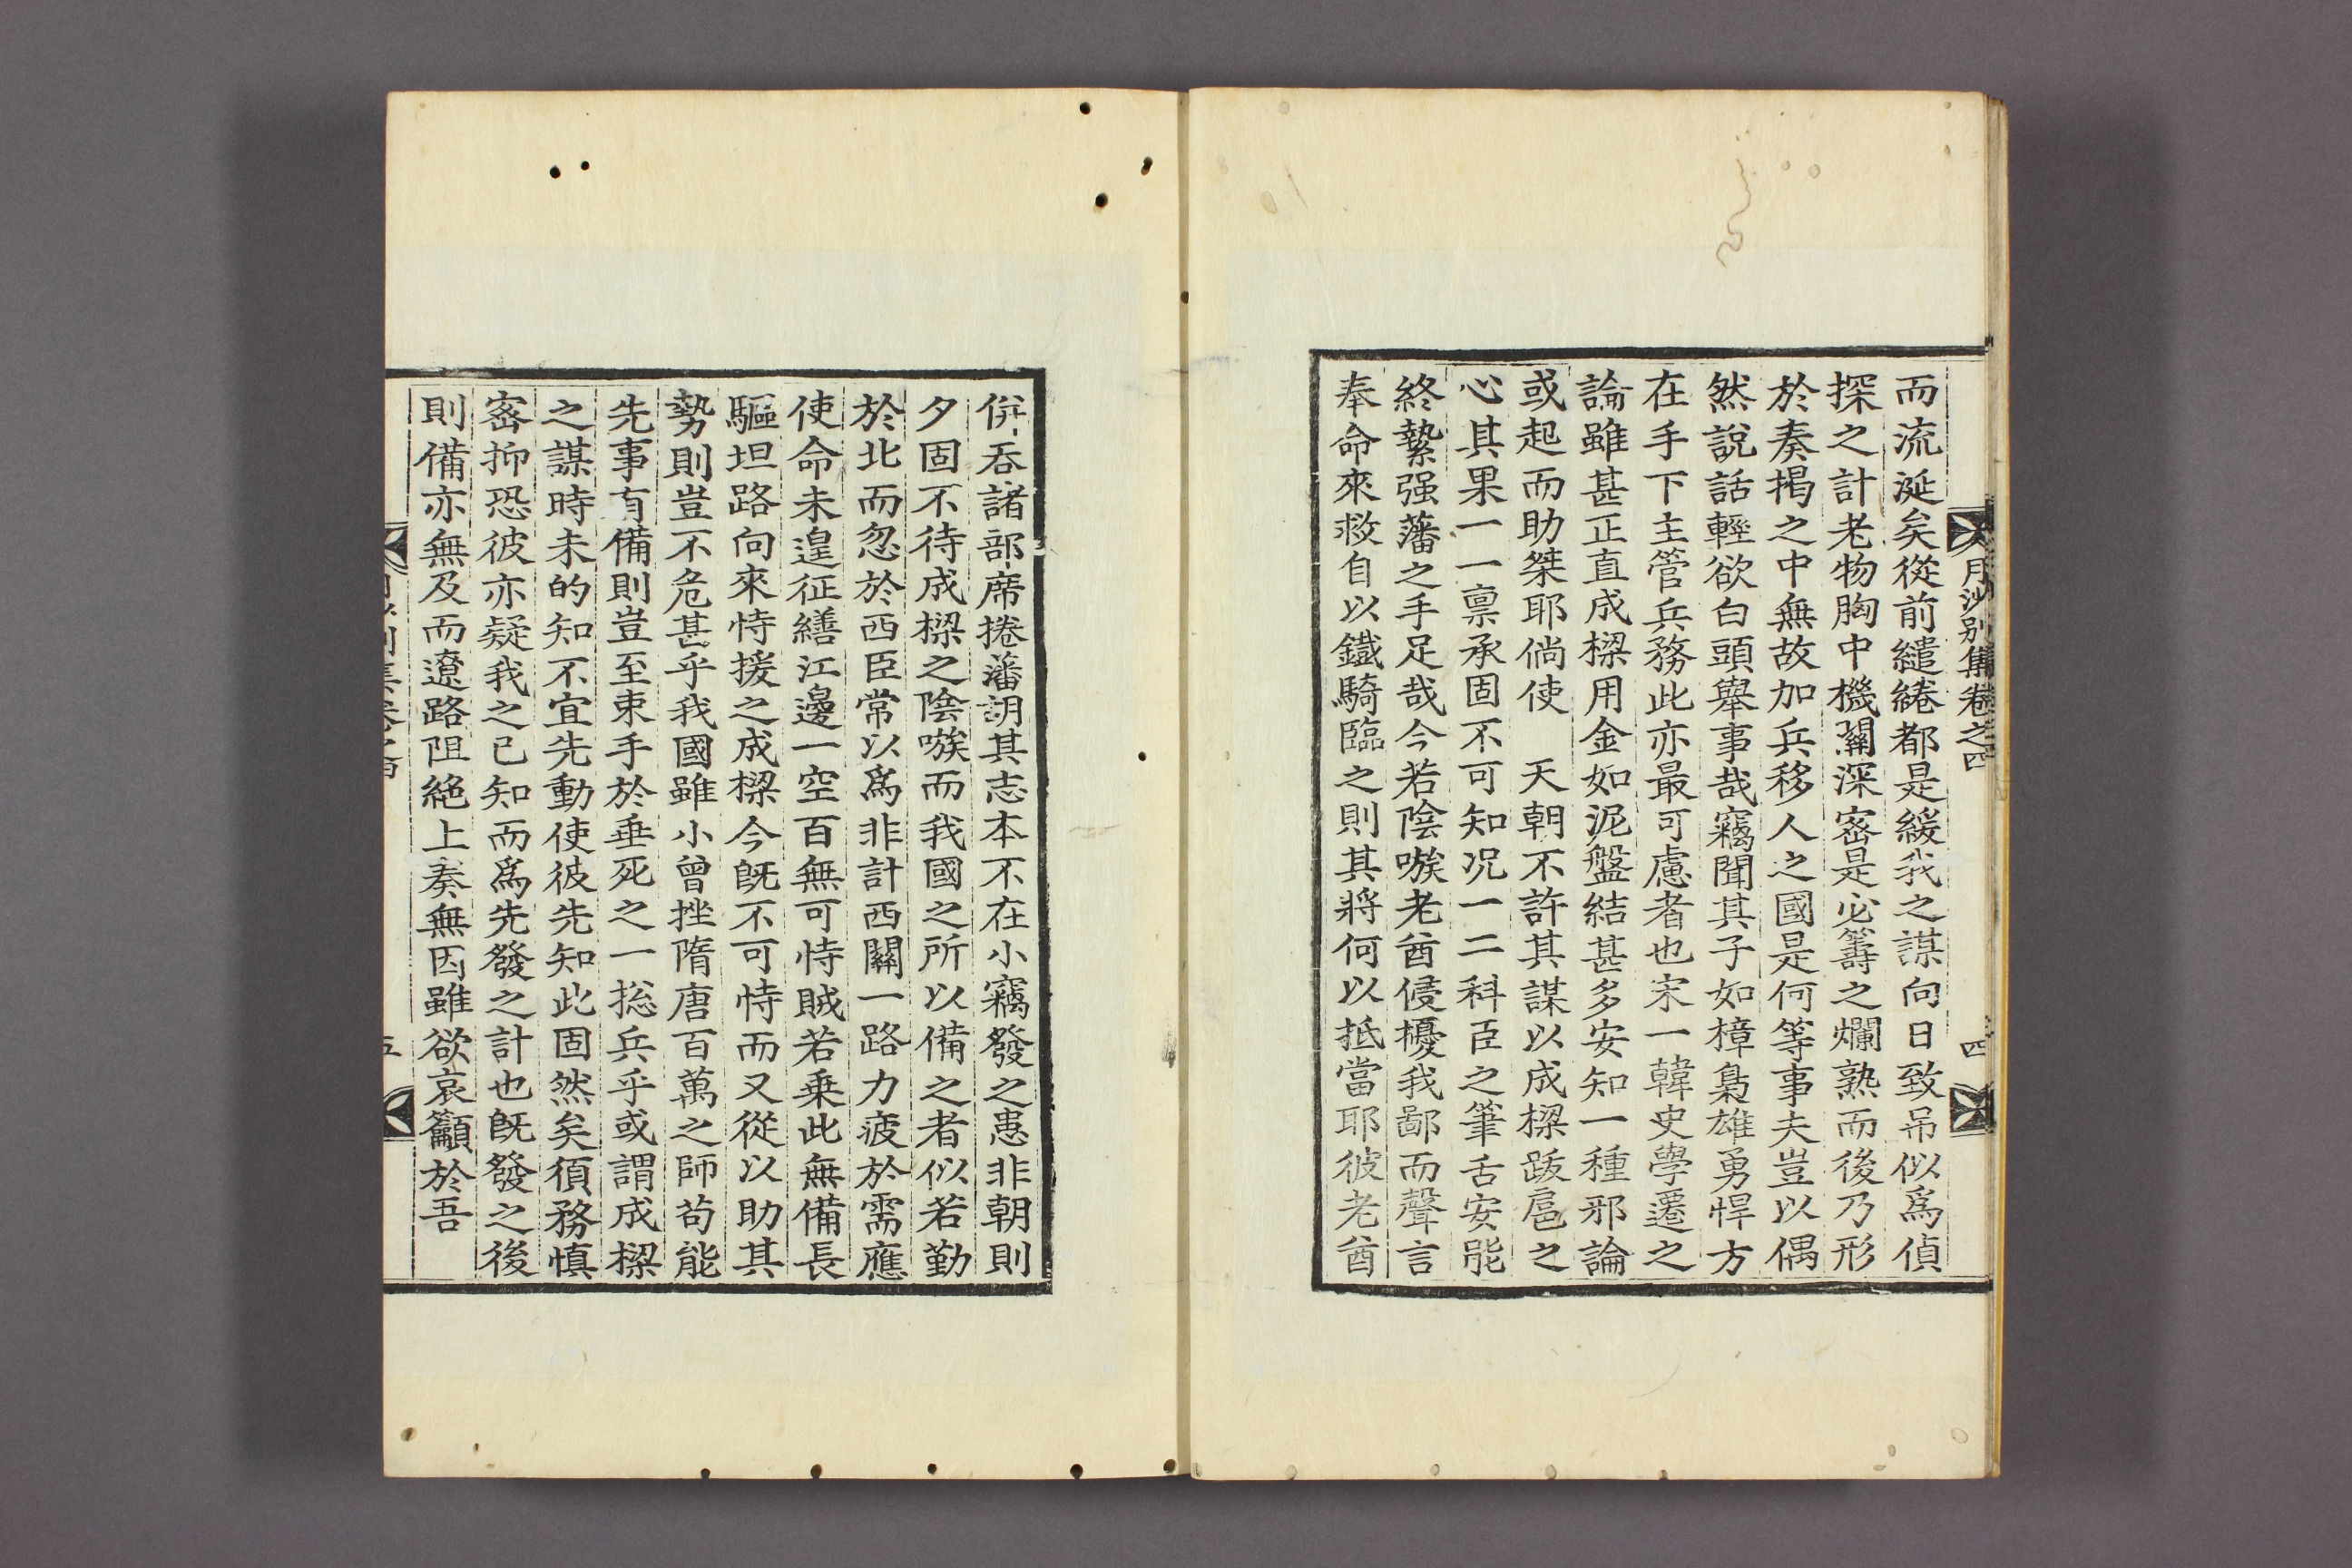 月沙別集卷之四
四
而流涎矣從前繾綣都是緩我之謀向日致吊似爲偵
探之計老物胸中機關深密是必籌之爛熟而後乃形
於奏揭之中無故加兵移人之國是何等事夫豈以偶
然說話輕欲白頭擧事哉竊聞其子如樟梟雄勇悍方
在手下主管兵務此亦最可慮者也宋一韓史學遷之
論雖甚正直成樑用金如泥盤結甚多安知一種邪論
或起而助桀耶倘使 天朝不許其謀以成樑跋扈之
心其果一一禀承固不可知况一二科臣之筆舌安能
終縶强藩之手足哉今若陰嗾老酋侵擾我鄙而聲言
奉命來救自以鐵騎臨之則其將何以抵當耶彼老酋
倂呑諸部席捲藩胡其志本不在小竊發之患非朝則
夕固不待成樑之陰嗾而我國之所以備之者似若勤
於北而忽於西臣常以爲非計西關一路力疲於需應
使命未遑征繕江邊一空百無可恃賊若乗此無備長
驅坦路向來恃援之成樑今旣不可恃而又從以助其
勢則豈不危甚乎我國雖小曾挫隋唐百萬之師苟能
先事有備則豈至束手於垂死之一緫兵乎或謂成樑
之謀時未的知不宜先動使彼先知此固然矣須務愼
密抑恐彼亦疑我之已知而爲先發之計也旣發之後
則備亦無及而遼路阻絶上奏無因雖欲哀籲於吾
五